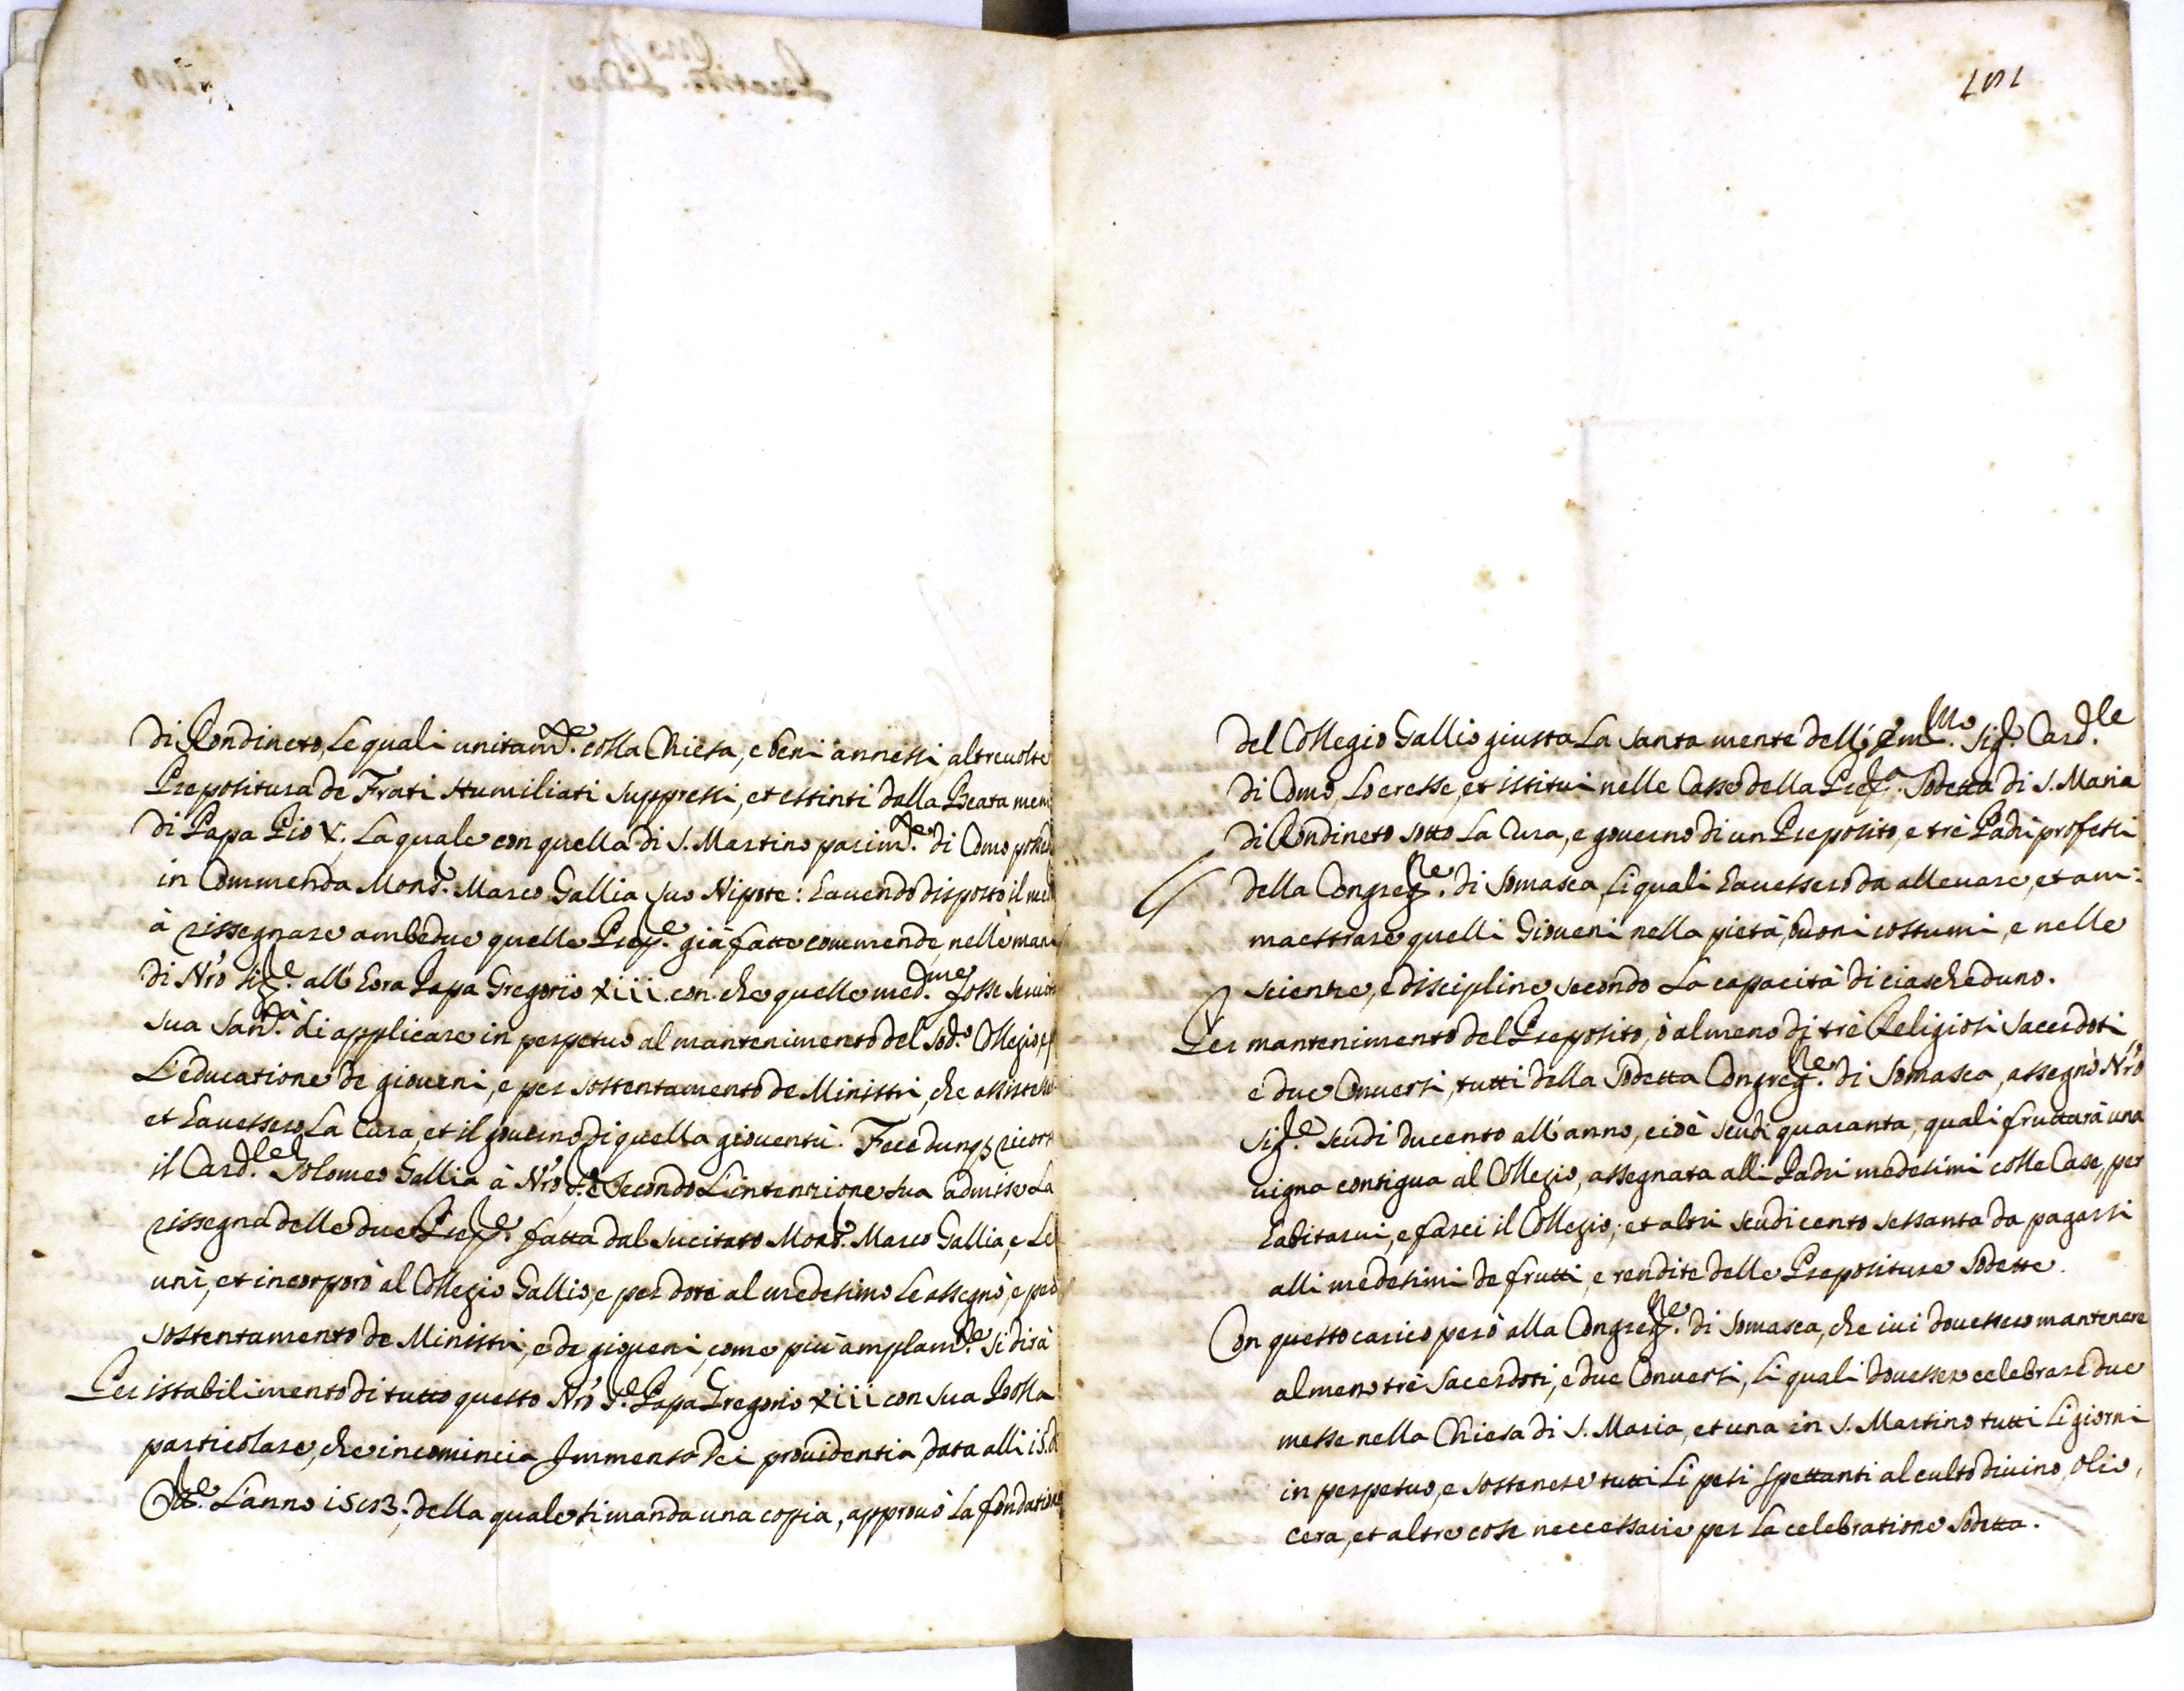 di Rondineto, le quali unitam.te colla Chiesa, e beni annessi, altreuolte
Prepositura de Frati Humiliati suppressi, et estinti dalla Beata mem
di Papa Pio V., la quale con quella di S. Martino parim.te di Como possed
in Commenda Mons.r Marco Gallia suo Nipote: hauendo disposto il med
à rissegnare ambedue quelle Prep.e già fatte commende, nelle mani
di N'ro Sig.e all' hora Papa Gregorio XIII con che quelle med.me fosse seruita
sua San.tà di applicare in perpetuo al mantenimento del sod.o Collegio, p
l'educatione de gioueni, e per sostentamento de Ministri, che assistess
et hauessero la cura, et il gouerno di quella giouentù. Fece dunq3 ricors
il Card.le Tolomeo Gallia à N'ro S.e, e secondo l'intenzione sua admise la
rissegna delle due Prep.e fatta dal sucitato Mons.r Marco Gallia, e le
unì, et incorporò al Collegio Gallio, e per dote al medesimo le assegnò, e per
sostentamento de Ministri, e de gioueni, come più amplam.te si dirà
Per istabilimento di tutto questo N'ro S.e Papa Gregorio XIII con sua Bolla
particolare, che incomincia Immensa Dei prouidentia, data alli 15. d
Ott.e l'anno 1583., della quale si manda una copia, approuò la fondatione
151
del Collegio Gallio giusta la santa mente dell' Em.mo Sig.r Card.le
di Como, lo eresse, et istituì nelle Case della Prep.a sodetta di S. Maria
di Rondineto sotto la cura, e gouerno di un Preposito, e trè Padri professi
della Congreg.ne di Somasca, li quali hauessero da alleuare, et am:
maestrare quelli Gioueni nella pietà, buoni costumi, e nelle
scienze, e discipline secondo la capacità di ciascheduno.
Per mantenimento del Preposito, ò almeno di trè Religiosi Sacerdoti
e due Conuersi, tutti della sodetta Congreg.ne di Somasca, assegnò N'ro
Sig.e scudi ducento all' anno, cioè scudi quaranta, quali fruttarà una
uigna contigua al Collegio, assegnata alli Padri medesimi colle Case, per
habitarui, e farci il Collegio; et altri scudi cento sessanta da pagarsi
alli medesimi de frutti, e rendite delle Prepositure sodette.
Con questo carico però alla Congreg.ne di Somasca, che iui douessero mantenere
almeno trè Sacerdoti, e due Conuersi, li quali douessero celebrare due
messe nella Chiesa di S. Maria, et una in S. Martino tutti li giorni
in perpetuo, e sostenere tutti li pesi spettanti al culto diuino, olio,
cera, et altre cose neccessarie per la celebratione sodetta.